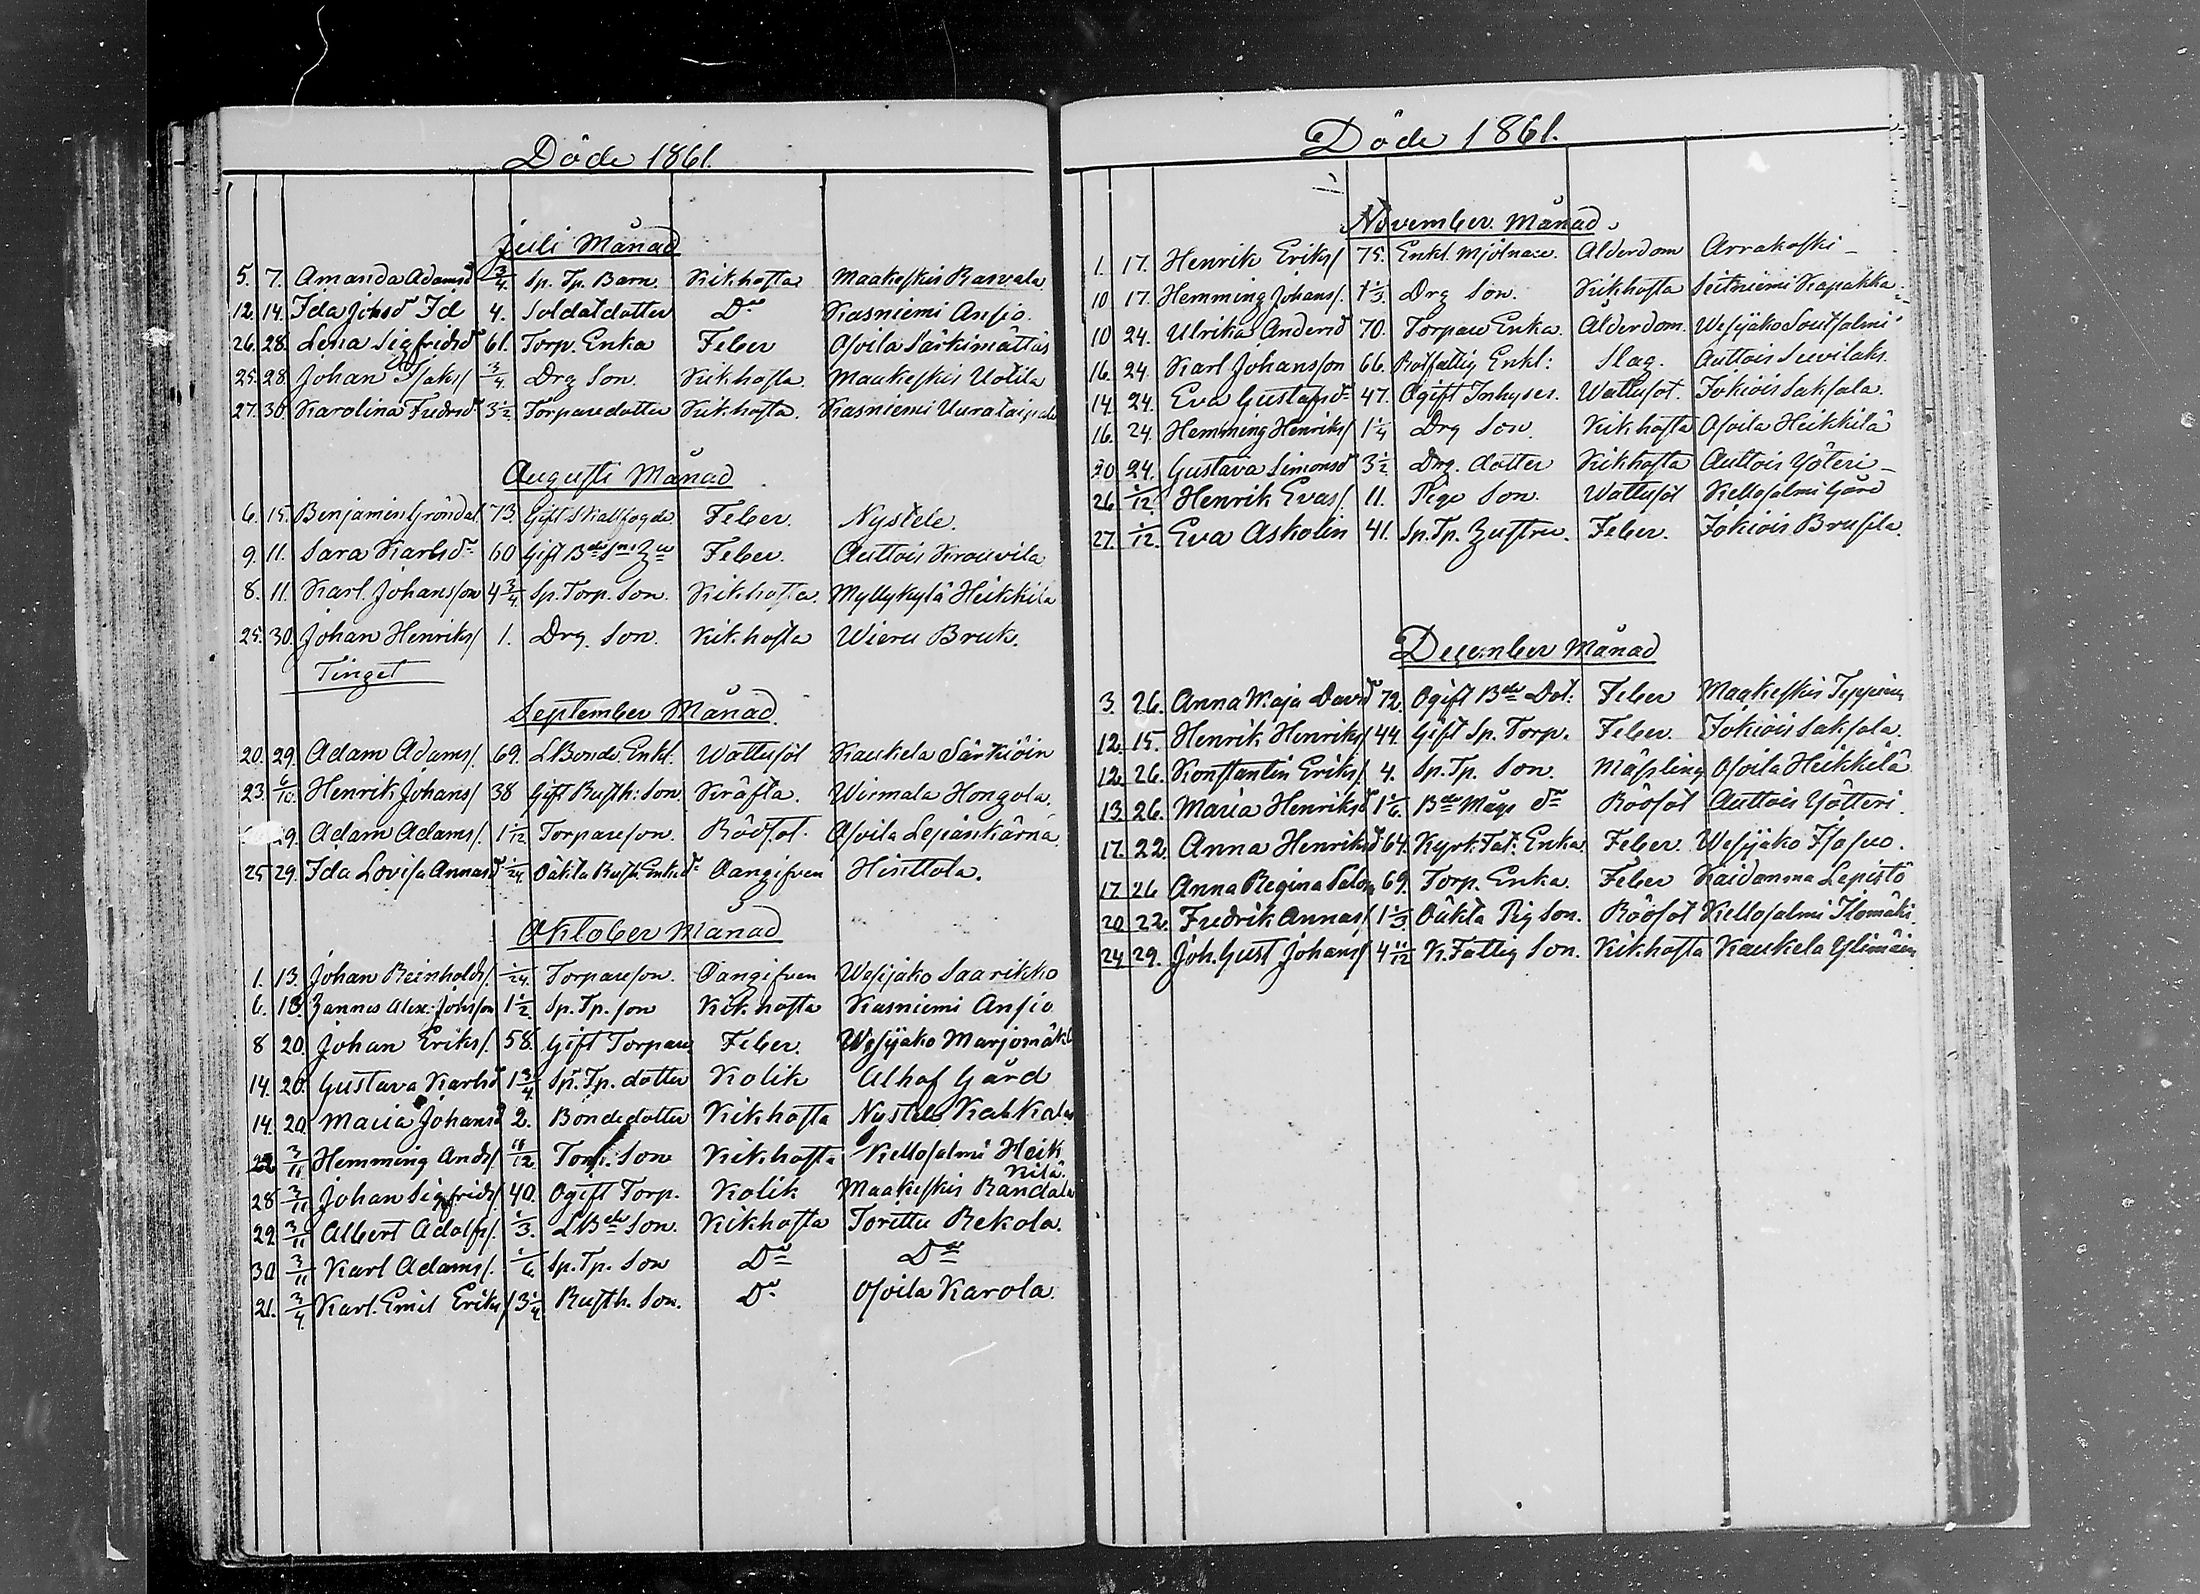 Döde 1861.
Juli Månad
5. 7. Amanda Adamsd 3/4 Sp. Tp. Barn Kikhosta Maakeskis Rasvala
12. 14. Ida Johsd Id 4. Soldatdotter Do Kasniemi Ansio.
26. 28. Lena Sigfridsdr 61. Torp. Enka Feber Osoila Särkimättäs
25. 28. Johan Isakss 3/4 Drg Son. Kikhosta. Maakeskis Uotila
27. 30. Karolina Fredrsdr 3 1/2 Torparedotter Kikhosta. Kasniemi Uurataipale
Augusti Månad
6. 15. Benjamin Gröndal. 73. Gift Skallfogde Feber. Nystele.
9. 11. Sara Karlsdr 60 Gift Bde Feber. Auttois Krouvila
8. 11. Karl Johansson 4 3/4 Sp. Torp. Son. Kikhosta. Myllykylä Heikkilä
25. 30. Johan Henrikss 1. Drg. Son. Kik.hosta Wieru Bruk.
Tinget
September Månad.
20. 29. Adam Adamss. 69. LBonde Enkl. Wattusot Kaukela Särkiöin
23. 6/10. Henrik Johanss 38 Gift Rusth: Son Kräfta. Wirmala Hongola.
29. Adam Adamss. 1 1/12 Torpareson. Rödsot. Osoila Lepänkärnä.
25 29. Ida Lovisa Annasdr 1/24 Oäkta Rusth. Enk dr Oangifven Hinttola.
Oktober Månad
1. 13. Johan Reinholdss. 1/24. Torpareson. Oangifven Wesijako Saarikko
6. 13. Zannes Alex: Johsson 1 1/2 Sp. Tp. son Kik.hosta Kasniemi Ansio
8 20. Johan Erikss. 58. Gift Torpare Feber. Wesijako Marjomäki
14. 20. Gustava Karlsdr 1 3/4 Sp. Tp. dotter Kolik Alhof Gård
14. 20. Maria Johansd 2. Bondedotter Kikhosta Nystele Kakkola
22 3/11 Hemming Andss 11/12 Torp. Son Kikhosta Kellosalmi Heik
kilä
28 3/11 Johan Sigfridss 40. Ogift Torp. Kolik Maakeskis Randala
29 3/11 Albert Adolfss. 1/3. LBde Son. Kikhosta Torittu Rekola.
30 3/11 Karl Adamss. 1/6 Sp. Tp. Son Do Do
21. 3/4 Karl Emil Erikss 3 1/4 Rusth. Son. Do Osoila Karola.
Döde 1861.
November Månad
1. 17. Henrik Erikss 75. Enkl. Mjölnare. Ålderdom Arrakoski
10 17. Hemming Johanss. 1 1/3 Drg Son. Kikhosta Seitniemi Kapakka
10 24. Ulrika Andersd 70. Torpare Enka. Ålderdom. Wesijako Soutsalmi
16. 24. Karl Johansson 66. Rotfattig Enkl: Slag. Auttois Seevilaks.
14. 24. Eva Gustafsdr 47. Ogift Inhyses. Wattusot. Jokiois Saksala.
16. 24. Hemming Henrikss 1 1/4 Drg Son. Kikhosta Osoila Heikkilä
20 24. Gustava Simonsd 3 1/2 Drg. dotter Kikhosta Auttois Yöteri
26 1/12. Henrik Evass. 11. Pige Son. Wattusot Kellosalmi Gård
27. 1/12. Eva Askolin 41. Sp. Tp. Hustru. Feber. Jokiois Brusila.
December Månad
3. 26. Anna Maja Davdr 72. Ogift Bde Dot: Feber Maakeskis Teppinen
12. 15. Henrik Henrikss 44. Gift Sp. Torp. Feber. Jokiois Saksala.
12. 26. Konstantin Erikss. 4. Sp. Tp. Son. Mässling Osoila Heikkilä
13. 26. Maria Henriksd 1 1/6. Bde Mågs dr Rödsot Auttois Yötteri.
17. 22. Anna Henriksd 64. Kyrk: Fat: Enka Feber. Wesijako Isosuo.
17. 26 Anna Regina Salon 69. Torp. Enka. Feber Kaidanma Lepistö
20 22. Fredrik Annass. 1 1/3 Oäkta Pig Son. Rödsot Kellosalmi Ilomäki
24 29. Joh. Gust Johanss 4 11/12 K. Fattig Son. Kikhosta Kaukela Ylimäin